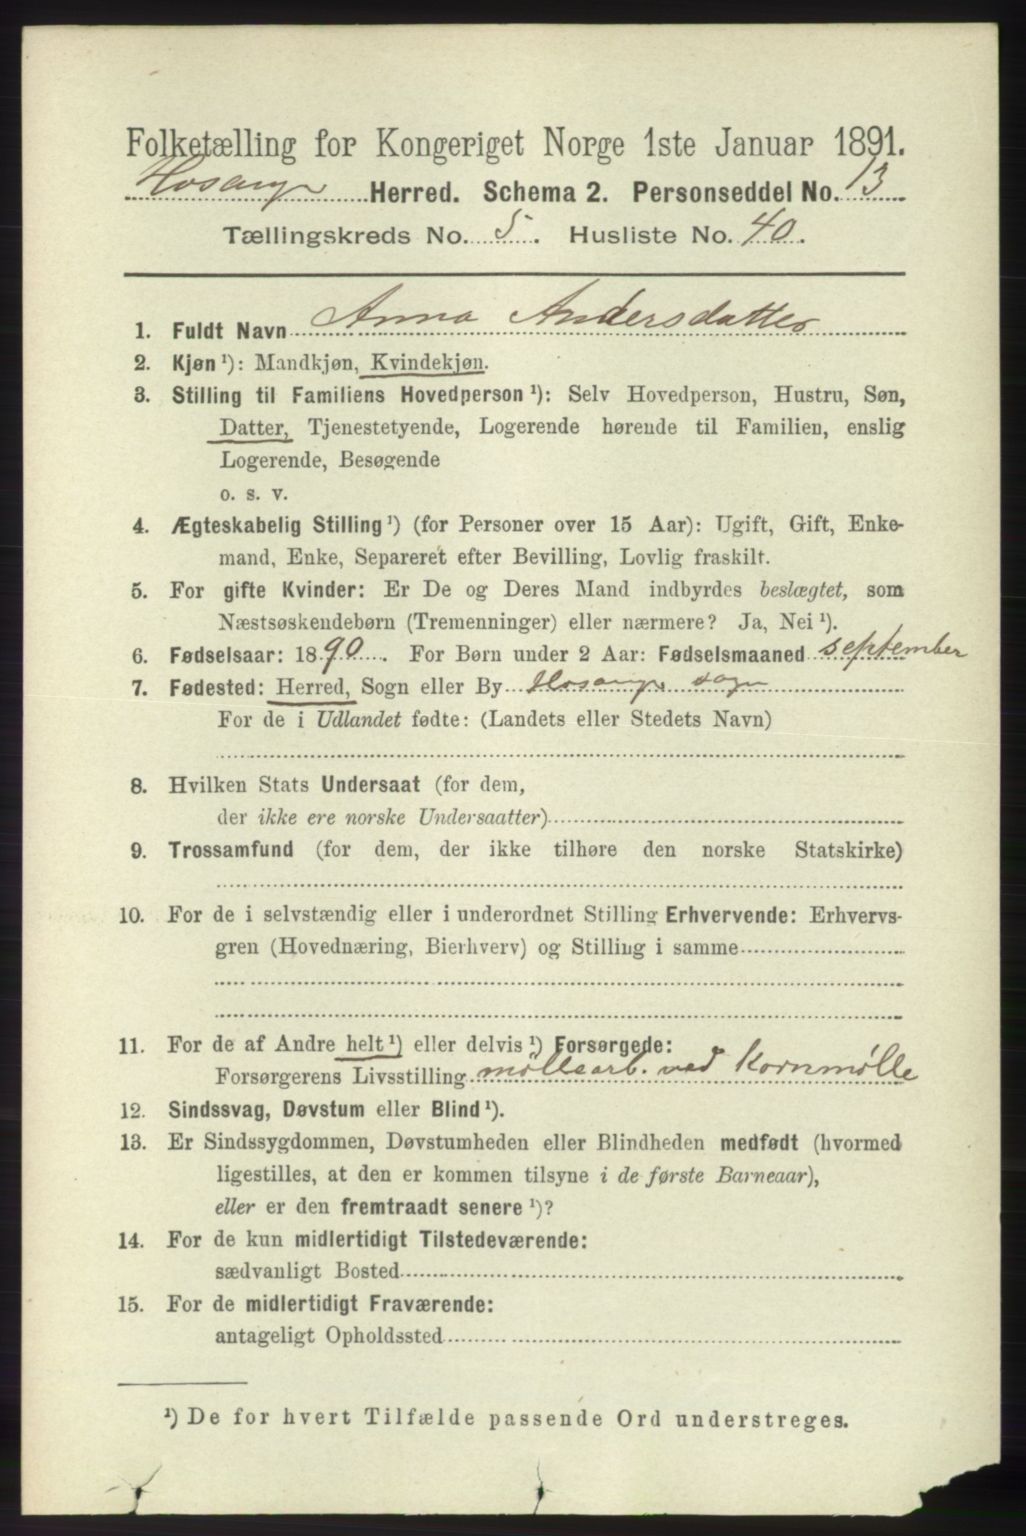 Folketælling for Kongeriget Norge 1ste Januar 1891.
Hosanger Herred. Schema 2. Personseddel No. 13
Tællingskreds No. 5. Husliste No. 40.
1. Fuldt Navn Anna Andersdatter
2. Kjøn ¹): Mandkjøn, Kvindekjøn.
3. Stilling til Familiens Hovedperson ¹): Selv Hovedperson, Hustru, Søn,
Datter, Tjenestetyende, Logerende hørende til Familien, enslig
Logerende, Besøgende
o. s. v.
4. Ægteskabelig Stilling ¹) (for Personer over 15 Aar): Ugift, Gift, Enke-
mand, Enke, Separeret efter Bevilling, Lovlig fraskilt.
5. For gifte Kvinder: Er De og Deres Mand indbyrdes beslægtet, som
Næstsøskendebørn (Tremenninger) eller nærmere? Ja, Nei ¹).
6. Fødselsaar: 1890. For Børn under 2 Aar: Fødselsmaaned september
7. Fødested: Herred, Sogn eller By Hosanger sogn
For de i Udlandet fødte: (Landets eller Stedets Navn)
8. Hvilken Stats Undersaat (for dem,
der ikke ere norske Undersaatter)
9. Trossamfund (for dem, der ikke tilhøre den norske Statskirke)
10. For de i selvstændig eller i underordnet Stilling Erhvervende: Erhvervs-
gren (Hovednæring, Bierhverv) og Stilling i samme
11. For de af Andre helt ¹) eller delvis ¹) Forsørgede:
Forsørgerens Livsstilling møllearb. ved Kornmølle
12. Sindssvag, Døvstum eller Blind ¹).
13. Er Sindssygdommen, Døvstumheden eller Blindheden medfødt (hvormed
ligestilles, at den er kommen tilsyne i de første Barneaar),
eller er den fremtraadt senere ¹)?
14. For de kun midlertidigt Tilstedeværende:
sædvanligt Bosted
15. For de midlertidigt Fraværende:
antageligt Opholdssted
¹) De for hvert Tilfælde passende Ord understreges.